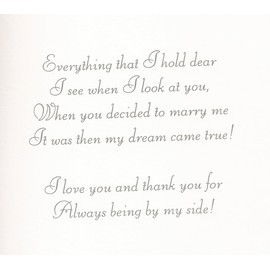 Everything that I hold dear
I see when I look at you,
When you decided to marry me
It was then my dream came true!
I love you and thank you for
Always being by my side!